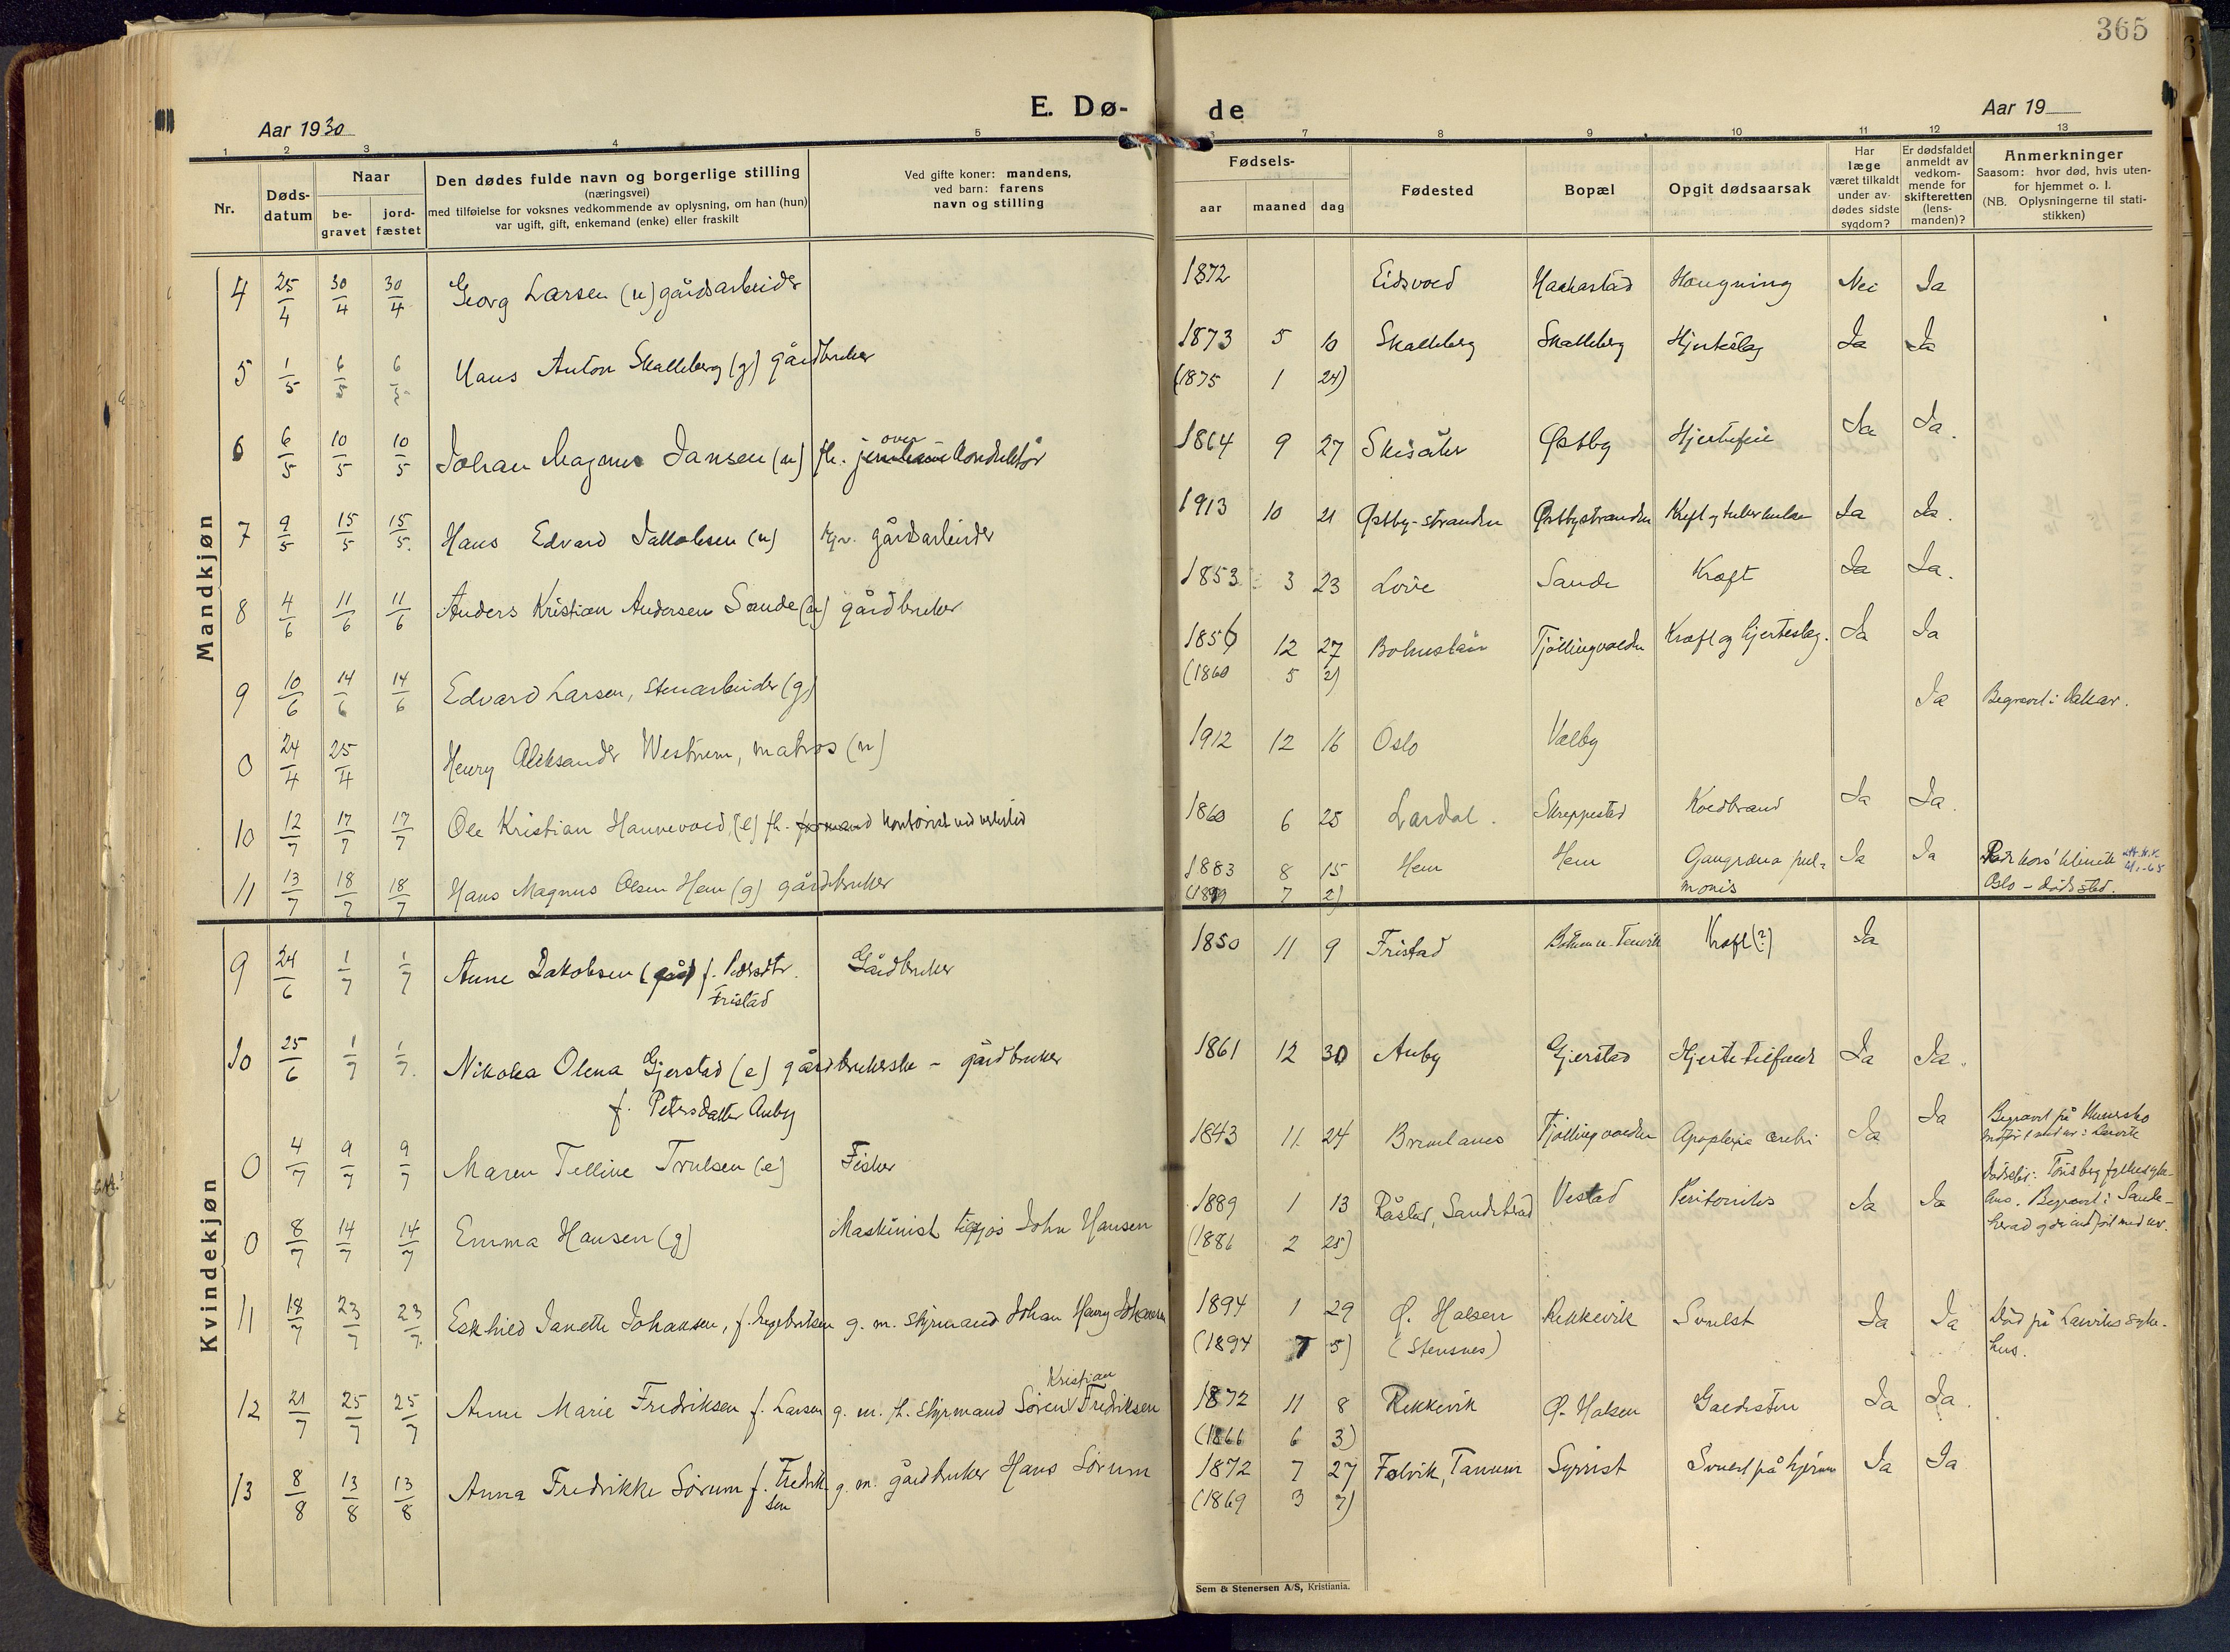 365
E. Dø- de
Aar 1930
Aar 19
1 2 3 4 5 6 7 8 9 10 11 12 13
Nr.
Døds-
datum
Naar
be-
gravet
jord-
fæstet
Den dødes fulde navn og borgerlige stilling
(næringsvei)
med tilføielse for voksnes vedkommende av oplysning, om han (hun)
var ugift, gift, enkemand (enke) eller fraskilt
Ved gifte koner: mandens,
ved barn: farens
navn og stilling
Fødsels-
aar maaned dag
Fødested
Bopæl
Opgit dødsaarsak
Har
læge
været tilkaldt
under av-
dødes sidste
sygdom?
Er dødsfaldet
anmeldt av
vedkom-
mende for
skifteretten
(lens-
manden)?
Anmerkninger
Saasom: hvor død, hvis uten-
for hjemmet o. l.
(NB. Oplysningerne til stati-
stikken)
Mandkjøn
4 25/4 30/4 30/4 Georg Larsen (u) gårdsarbeider 1872 Eidsvold Haakastad Hængning Nei Ja
5 1/5 6/5 6/5 Hans Anton Skalleberg (g) gårdbruker 1873 5 10 Skalleberg Skalleberg Hjerteslag Ja Ja
(1875 1 24)
over
6 6/5 10/5 10/5 Johan Magnus Jansen (u) fh. konduktør 1864 9 27 Skisåker Østby Hjertefeil Ja Ja.
7 9/5 15/5 15/5 Hans Edvard Jakobsen (u) gårdsarbeider 1913 10 21 Østby-stranden Østbystranden Kreft og tuberkulose Ja Ja.
8 4/6 11/6 11/6 Anders Kristian Andersen Sande (u) gårdbruker 1853 3 23 Løve Sande Kræft Ja Ja.
9 10/6 14/6 14/6 Edvard Larsen, stenarbeider (g) 1856 12 27 Bohuslän Tjøllingvolden Kræft og hjerteslag. Ja Ja
(1860 5 2)
0 24/4 25/4 Henry Aleksander Westrum, matros (u) 1912 12 16 Oslo Valby Ja Begravet i
10 12/7 17/7 17/7 Ole Kristian Hannevold, (e) fh. formand kontorist ved verksted 1860 6 25 Lardal. Skreppestad Koldbrand Ja Ja.
11 13/7 18/7 18/7 Hans Magnus Olsen Hem (g) gårdbruker 1883 8 15 Hem Hem Gangræna pul- Ja Ja Røde kors' klinikk
(1899 7 2) monis Oslo - dødssted.
Kvindekjøn
9 24/6 1/7 1/7 Anne Jakobsen f. Pedersdtr. Gårdbruker 1850 11 9 Fristad Kræft (?) Ja
Fristad
10 25/6 1/7 1/7 Nikolea Olena Gjerstad (e) gårdbrukerske - gårdbruker 1861 12 30 Auby Gjerstad Hjertetilfælde Ja Ja.
f. Petersdatter Auby
0 4/7 9/7 9/7 Maren Telline Trulsen (e) Fisker 1843 11 24 Brunlanes Tjøllingvolden Apoplexia cerebri Ja Ja Begravet på
0 8/7 14/7 14/7 Emma Hansen (g) Maskinist John Hansen 1889 1 13 Råstad, Sandeherad Vestad Peritonitis Ja Ja Dødssted: Tønsberg fylkessyke-
hus. Begravet i Sande-
herad
(1886 2 25)
11 18/7 23/7 23/7 Eskhild Janette Johansen, f. Ingebretsen g. m. styrmand Johan Henry Johansen 1894 1 29 Ø. Halsen Rekkevik Svulst Ja Ja Død på Larviks syke-
(1894 7 5) (Stensnes) hus.
Kristian
12 21/7 25/7 25/7 Anne Marie Fredriksen f. Larsen g. m. fh. styrmand Søren Fredriksen 1872 11 8 Rekkevik Ø. Halsen Galdesten Ja Ja.
(1866 6 3)
13 8/8 13/8 13/8 Anna Fredrikke Sørum f. Fredrik- g. m. gårdbruker Hans Sørum 1872 7 27 Falvik, Tanum Syrrist Svulst på hjernen Ja Ja
sen (1869 3 7)
Sem & Stenersen A/S, Kristiania.